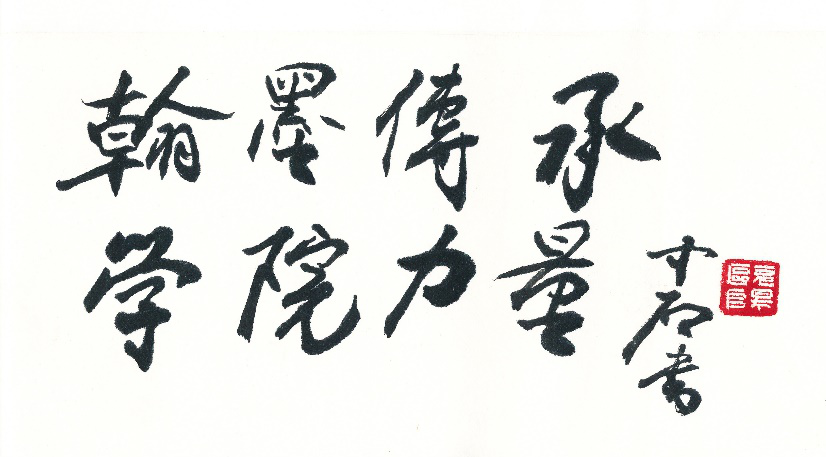 翰墨傳承
学院力量
石書